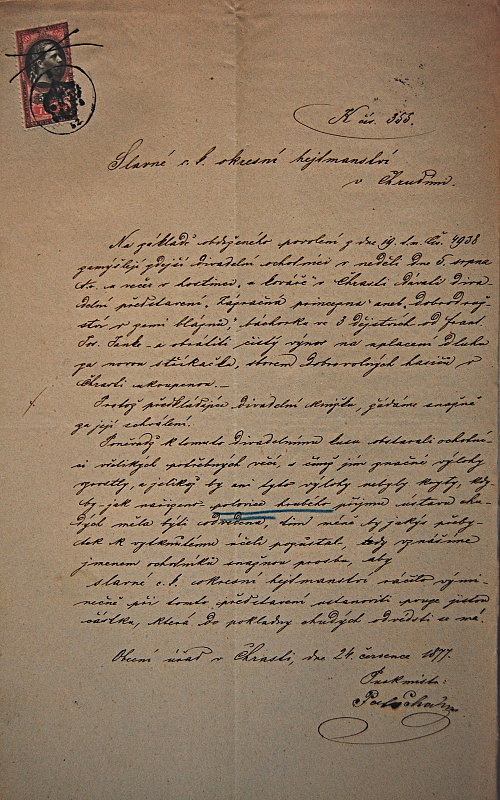 K čís. 355.
Slavné c. k. okresní hejtmanství
v Chrudimi.
Na základě obdrženého povolení z dne 19. t. m. čís. 4938
zamýšlejí zdejší divadelní ochotníci v neděli dne 5. srpna
t. r. večer v hostinci u kovářů v Chrasti dávati diva-
delní představení „Zázračná princezna" aneb „Dobrodruž-
ství v zemi bláznů", báchorka ve 3 dějstvích od Frant.
Jos. a obrátiti čistý výnos na zaplacení dluhu
za novou stříkačku, sborem dobrovolných hasičů v
Chrasti zakoupenou.—
Pročež předkládajíce divadelní knížku, žádáme snažně
za její schválení.
Poněvadž k tomuto divadelnímu kusu obstarali ochotní-
ci všelikých potřebných věcí, s čímž jim značné výlohy
vzrostly, a jelikož by ani tyto výlohy nebyly kryty, kdy-
by jak nařízeno polovice hrubého příjmu ústavu chu-
dých měla býti odvedena, tím méně by jakýs přeby-
tek k vytknutému účeli pozůstal, tedy vznášíme
jmenem ochotníků snažnou prosbu, aby
slavné c. k. okresní hejtmanství ráčilo vými-
nečně při tomto představení ustanoviti pouze jistou
částku, která do pokladny chudých odvésti se má.
Obecní úřad v Chrasti, dne 24. července 1877.
Purkmistr: